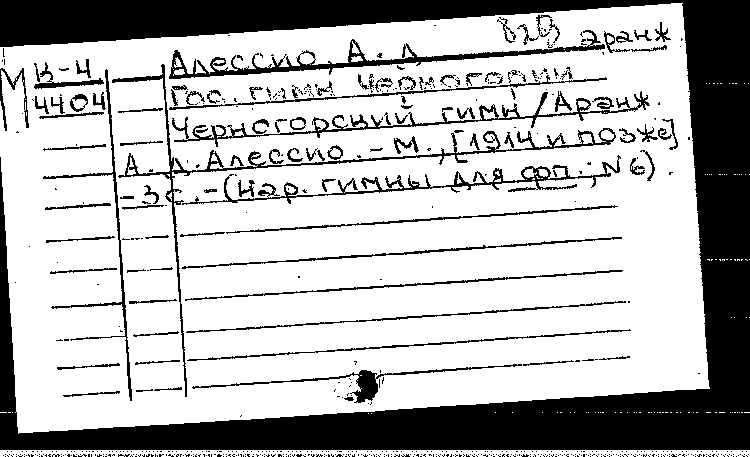 829
М В-4 Алессио, А. д аранж.
4404 Гос. гимн Черногории
Черногорский гимн / Аранж.
А. д. Алессио. - М., [1914 и позже].
- 3 с. - (Нар. гимны для фп.; N 6).